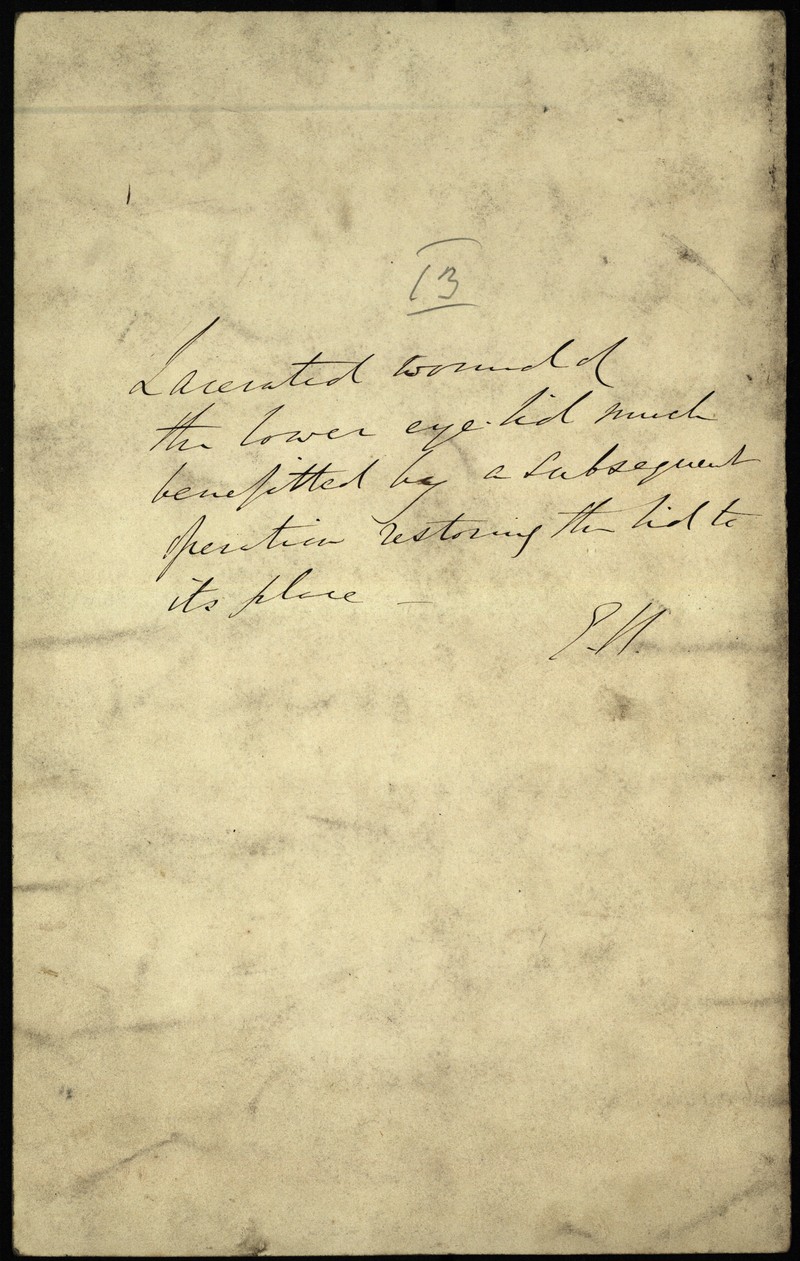 13
Lacerated wound of
the lower eye-lid much
benefitted by a subsequent
operation restoring the lid to
its place —
E.H.